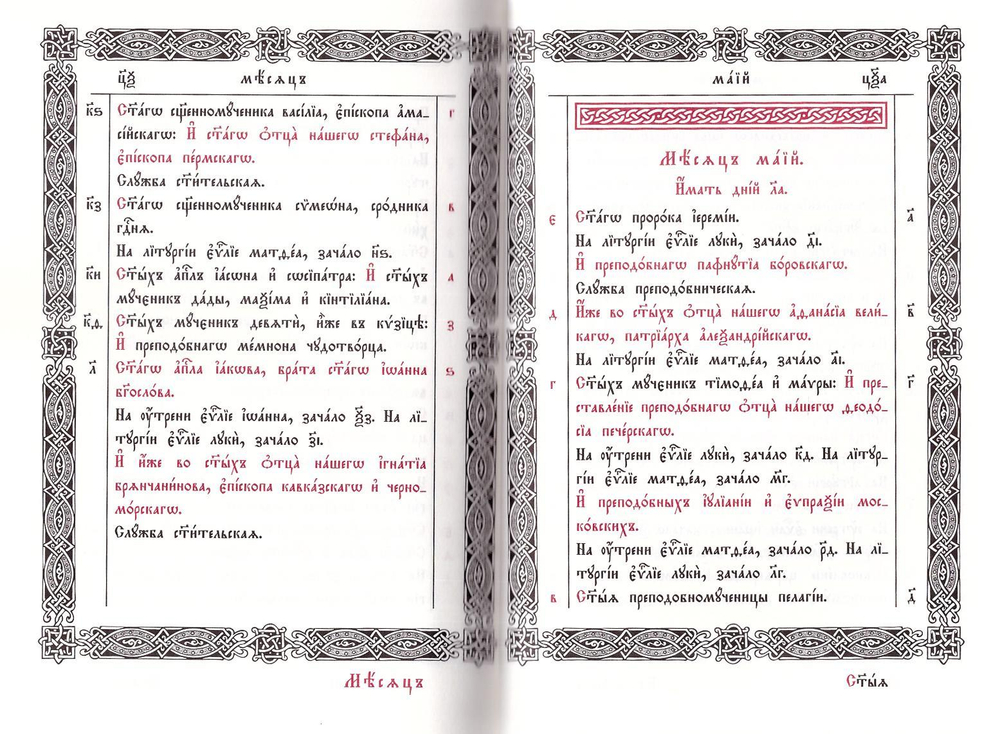 ц҃ѯ мѣ́сяцъ
к҃ѕ Ст҃а́гѡ сщ҃енномꙋ́ченика васі́лїа, є҆пі́скопа а҆ма- г
сі́йскагѡ: И҆ ст҃а́гѡ ѻ҆тца̀ на́шегѡ стефа́на,
є҆пі́скопа пе́рмскагѡ.
Слꙋ́жба ст҃и́тельская.
к҃з Ст҃а́гѡ сщ҃енномꙋ́ченика сѷмеѡ́на, сро́дника в
гдⷭ҇ня.
На лїтꙋргі́и є҆ѵⷢ҇лїе матѳ́еа, зача́ло н҃ѕ.
к҃и Ст҃ы́хъ а҆пⷭ҇лъ і҆а́сѡна и҆ сѡсїпа́тра: И҆ ст҃ы́хъ а
мꙋ́ченикъ да́ды, маѯі́ма и҆ кїнтїлїа́на.
к҃ѳ Ст҃ы́хъ мꙋ́ченикъ девятѝ, и҆̀же въ кѷзі́цѣ: з
И҆ преподо́бнаго ме́мнона чꙋдотво́рца.
л҃ Ст҃а́гѡ а҆пⷭ҇ла і҆а́кѡва, бра́та ст҃а́гѡ і҆ѡа́нна ѕ
бг҃осло́ва.
На ᲂу҆́трени є҆ѵⷢ҇лїе і҆ѡа́нна, зача́ло ѯ҃з. На лї-
тꙋргі́и є҆ѵⷢ҇лїе лꙋкѝ, зача́ло ѯ҃і.
И҆ и҆́же во ст҃ы́хъ ѻ҆тца̀ на́шегѡ і҆гна́тїа
брянчани́нова, є҆пі́скопа кавка́зскагѡ и҆ черно-
мо́рскагѡ.
Слꙋ́жба ст҃и́тельская.
Мѣ́сяцъ
ма́їй ц҃ѯа
Мѣ́сяцъ ма́їй.
И҆́мать дні́й л҃а.
є Ст҃а́гѡ проро́ка і҆еремі́и. а҃
На лїтꙋргі́и є҆ѵⷢ҇лїе лꙋкѝ, зача́ло д҃і.
И҆ преподо́бнагѡ пафнꙋ́тїа бо́ровскагѡ.
Слꙋ́жба преподо́бническая.
д И҆́же во ст҃ы́хъ ѻ҆тца̀ на́шегѡ а҆ѳана́сїа вели́- в҃
кагѡ, патрїа́рха а҆леѯандрі́йскагѡ.
На лїтꙋргі́и є҆ѵⷢ҇лїе матѳ́еа, зача́ло а҃і.
г Ст҃ы́хъ мꙋ́ченикъ тїмоѳ́еа и҆ ма́ѵры: И҆ пре- г҃
ставле́нїе преподо́бнагѡ ѻ҆тца̀ на́шегѡ ѳеодо́-
сїа пече́рскагѡ.
На ᲂу҆́трени є҆ѵⷢ҇лїе лꙋкѝ, зача́ло к҃д. На лїтꙋр-
гі́и є҆ѵⷢ҇лїе матѳ́еа, зача́ло м҃г.
И҆ преподо́бныхъ і҆ꙋлїа́нїи и҆ є҆ѵпраѯі́и мос-
ко́вскихъ.
На ᲂу҆́трени є҆ѵⷢ҇лїе матѳ́еа, зача́ло р҃д. На лї-
тꙋргі́и є҆ѵⷢ҇лїе лꙋкѝ, зача́ло л҃г.
в Ст҃ы́я преподобномꙋ́ченицы пелагі́и. д҃
Ст҃ы́я